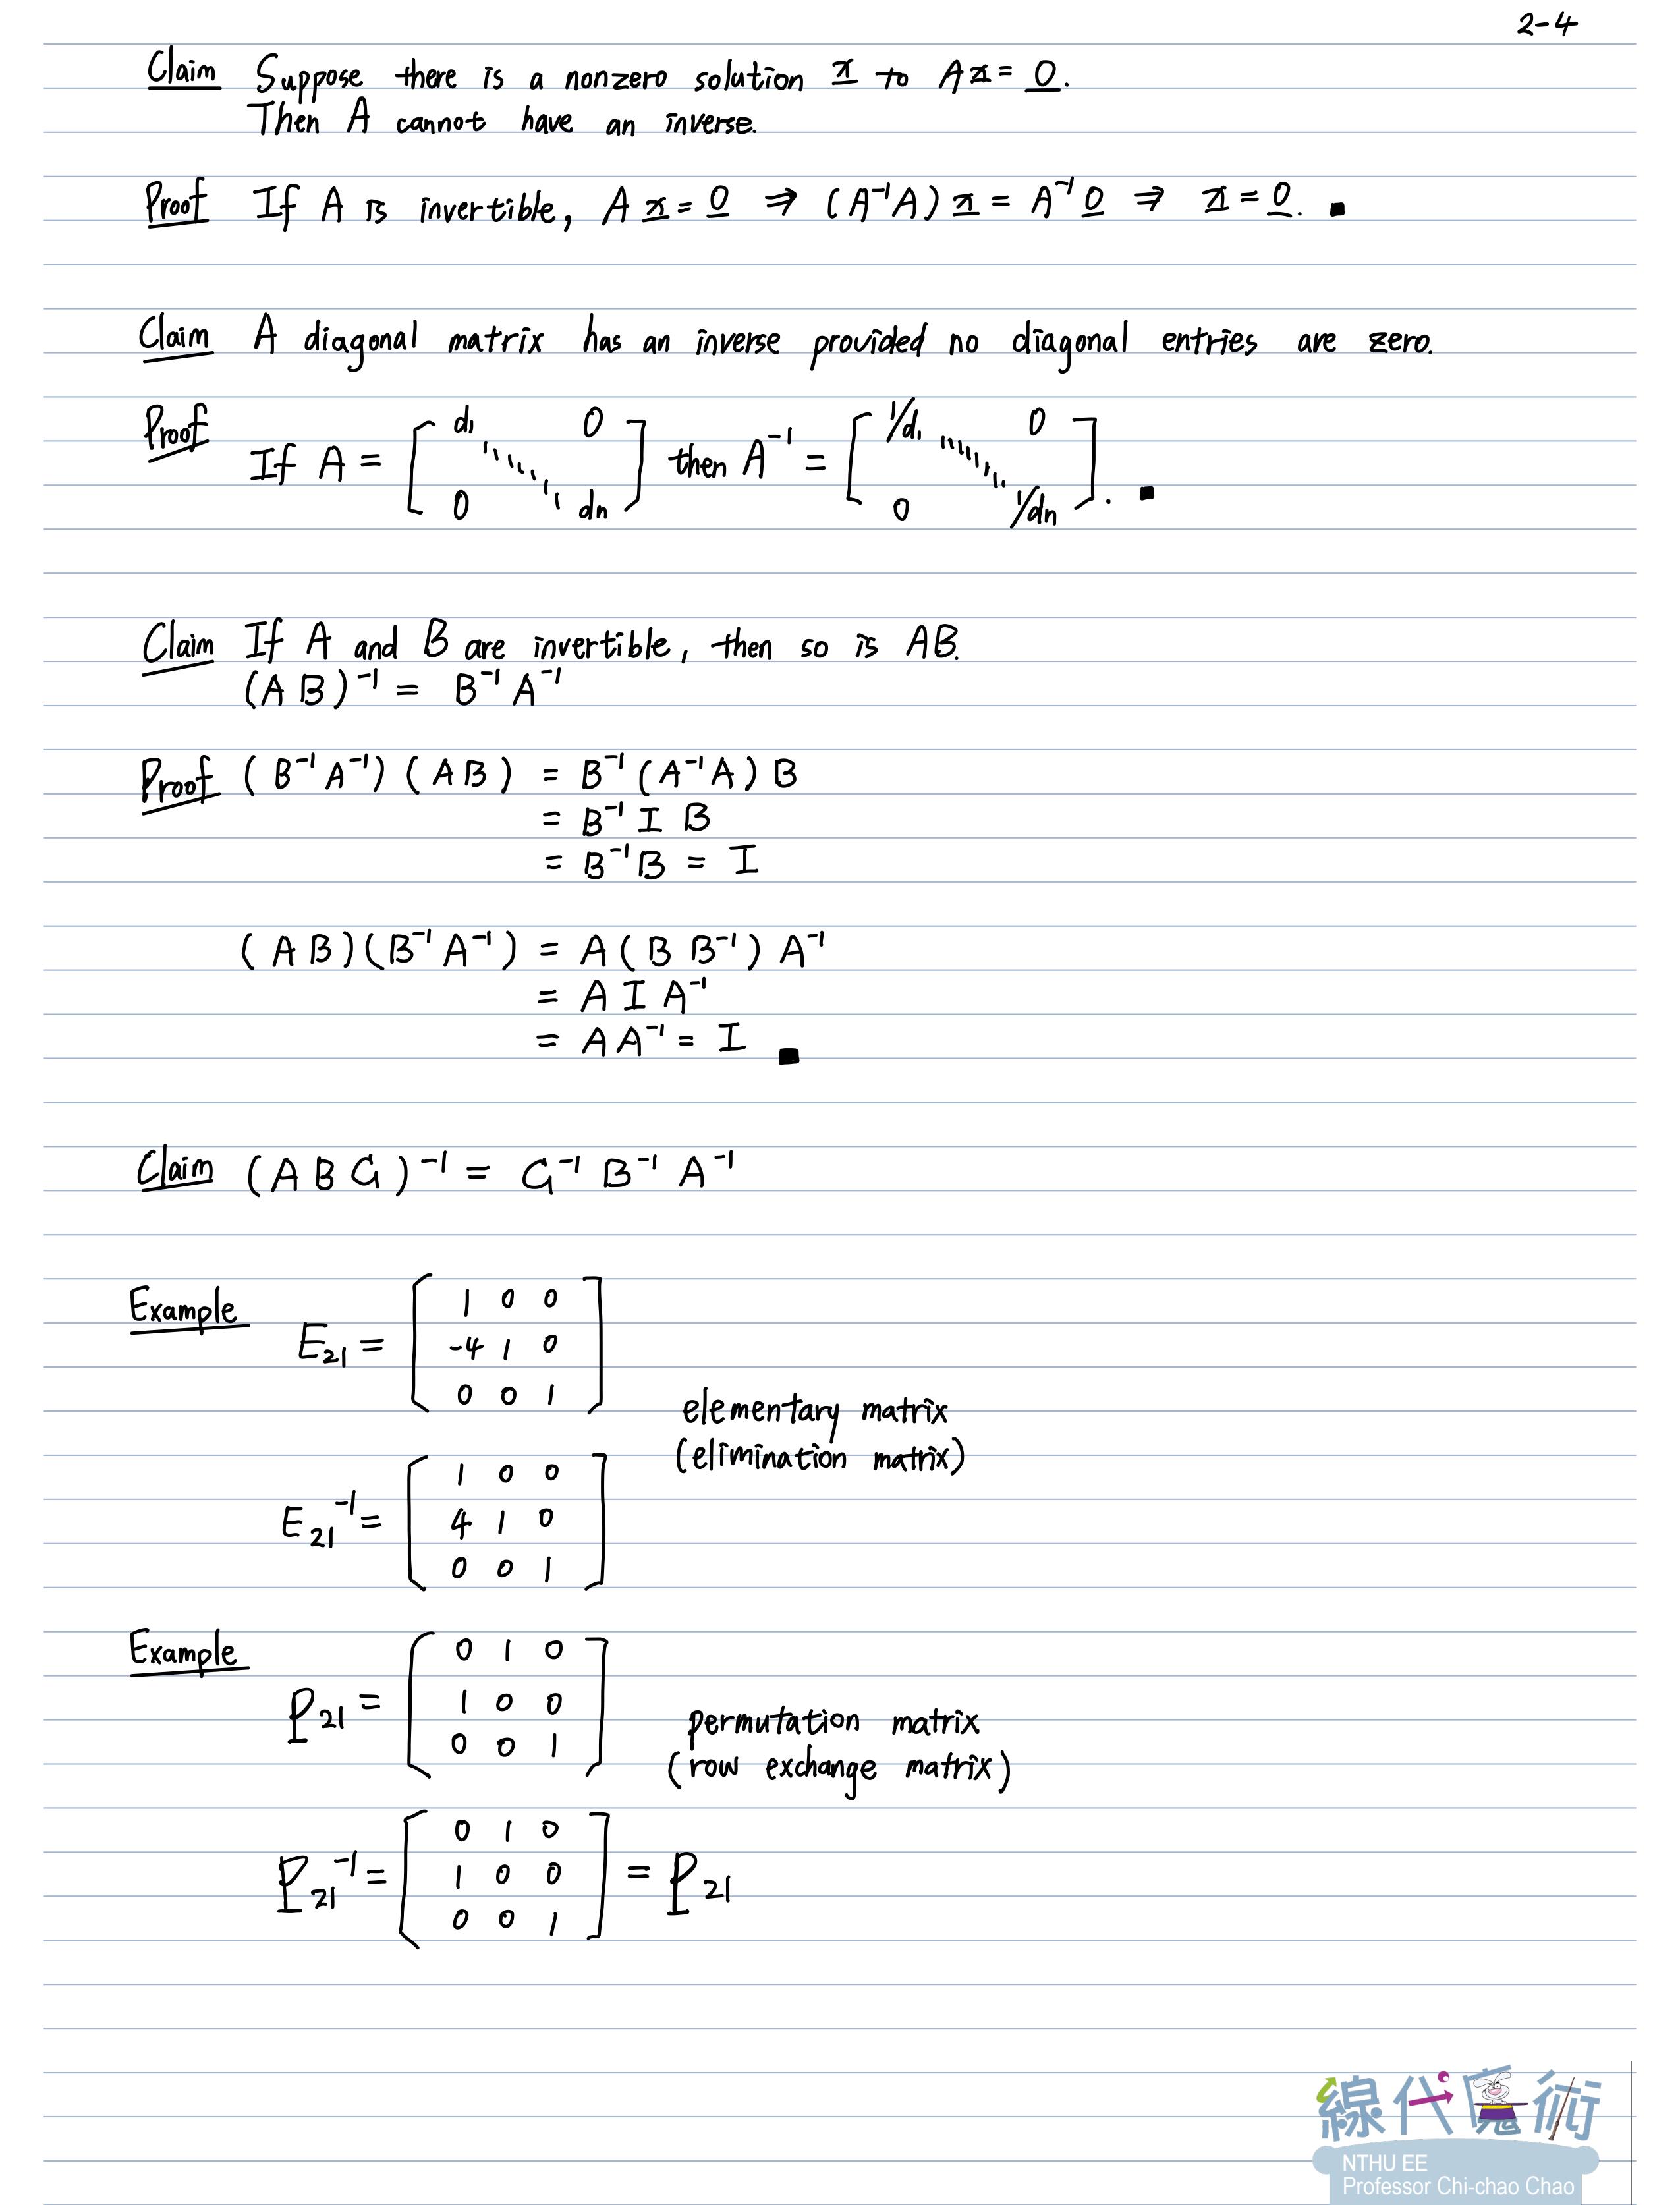 2-4
Claim Suppose there is a nonzero solution x to Ax = 0.
Then A cannot have an inverse.
Proof If A is invertible, A x = 0 ⇒ (A⁻¹A) x = A⁻¹ 0 ⇒ x = 0. ■
Claim A diagonal matrix has an inverse provided no diagonal entries are zero.
Proof
If A = [ d₁ ⋱ 0 ; 0 dn ] then A⁻¹ = [ 1/d₁ ⋱ 0 ; 0 1/dn ]. ■
Claim If A and B are invertible, then so is AB.
(AB)⁻¹ = B⁻¹ A⁻¹
Proof (B⁻¹A⁻¹)(AB) = B⁻¹(A⁻¹A)B
= B⁻¹ I B
= B⁻¹B = I
(AB)(B⁻¹A⁻¹) = A(B B⁻¹)A⁻¹
= A I A⁻¹
= AA⁻¹ = I ■
Claim (ABC)⁻¹ = C⁻¹ B⁻¹ A⁻¹
Example
E₂₁ = [ 1 0 0
-4 1 0
0 0 1 ]
elementary matrix
(elimination matrix)
E₂₁⁻¹ = [ 1 0 0
4 1 0
0 0 1 ]
Example
P₂₁ = [ 0 1 0
1 0 0
0 0 1 ]
permutation matrix
(row exchange matrix)
P₂₁⁻¹ = [ 0 1 0
1 0 0
0 0 1 ] = P₂₁
線代魔術
NTHU EE
Professor Chi-chao Chao